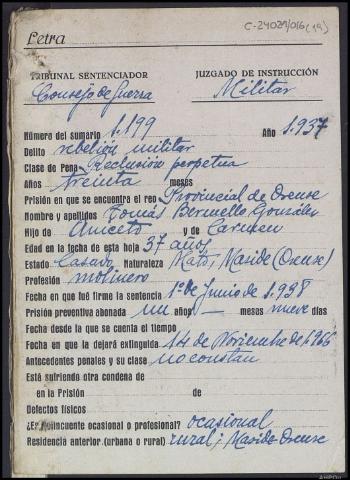 C-24029/016(19)
Letra
TRIBUNAL SENTENCIADOR
JUZGADO DE INSTRUCCIÓN
Consejo de Guerra
Militar
Número del sumario 1.199 Año 1.937
Delito rebelión militar
Clase de Pena Reclusión perpetua
Años treinta meses
Prisión en que se encuentra el reo Provincial de Orense
Nombre y apellidos Tomás Bermello González
Hijo de Aniceto y de Carmen
Edad en la fecha de esta hoja 37 años
Estado Casado Naturaleza Maside (Orense)
Profesión molinero
Fecha en que fué firme la sentencia 1º de Junio de 1.938
Prisión preventiva abonada un años meses nueve días
Fecha desde la que se cuenta el tiempo
Fecha en que la dejará extinguida 14 de Noviembre de 1966
Antecedentes penales y su clase no constan
Está sufriendo otra condena de
en la Prisión de
Defectos físicos
¿Es delincuente ocasional o profesional? ocasional
Residencia anterior (urbana o rural) rural; Maside-Orense